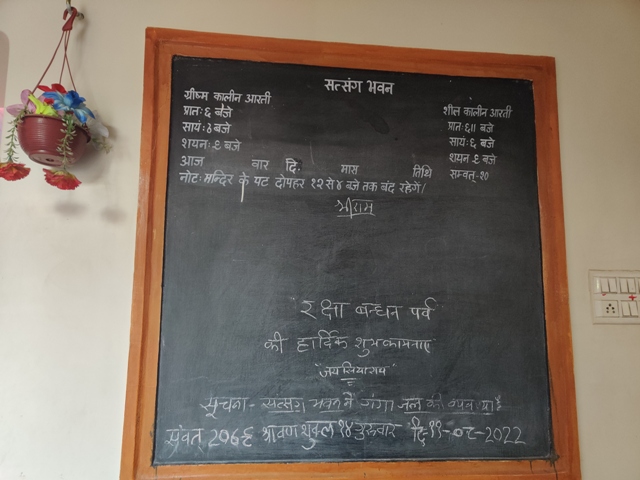 सत्संग भवन
ग्रीष्म कालीन आरती
प्रातः ६ बजे
सायंः ७ बजे
शयनः ९ बजे
शील कालीन आरती
प्रातः ६॥ बजे
सायंः ६ बजे
शयन ९ बजे
आज वार दि. मास तिथि सम्वत्-२०
नोटः मन्दिर के पट दोपहर १२ से ४ बजे तक बंद रहेगें।
श्री राम
"रक्षा बन्धन पर्व
की हार्दिक शुभकामनाएं
"जय सियाराम"
सूचना- सत्संग भवन में गंगा जल की
संवत् श्रावण शुक्ल १४ गुरुवार दि. ११-०८-2022